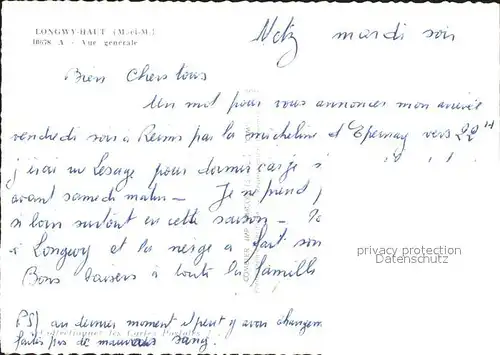 LONGWY-HAUT (M.-et-M.)
10678 A - Vue générale
Metz mardi soir
Bien Chers tous
Un mot pour vous annoncer mon arrivée
vendredi soir à Reims par la micheline d'Epernay vers 22H
j'irai Lesage pour dormir car je
avant samedi matin - Je ne prend
si loin surtout en cette saison -
à Longwy et la neige a fait son
Bons baisers à toute la famille
PS) au dernier moment il peut y avoir changem
faites pas de mauvais sang.
Collectionnez les Cartes Postales
privacy protection
Datenschutz